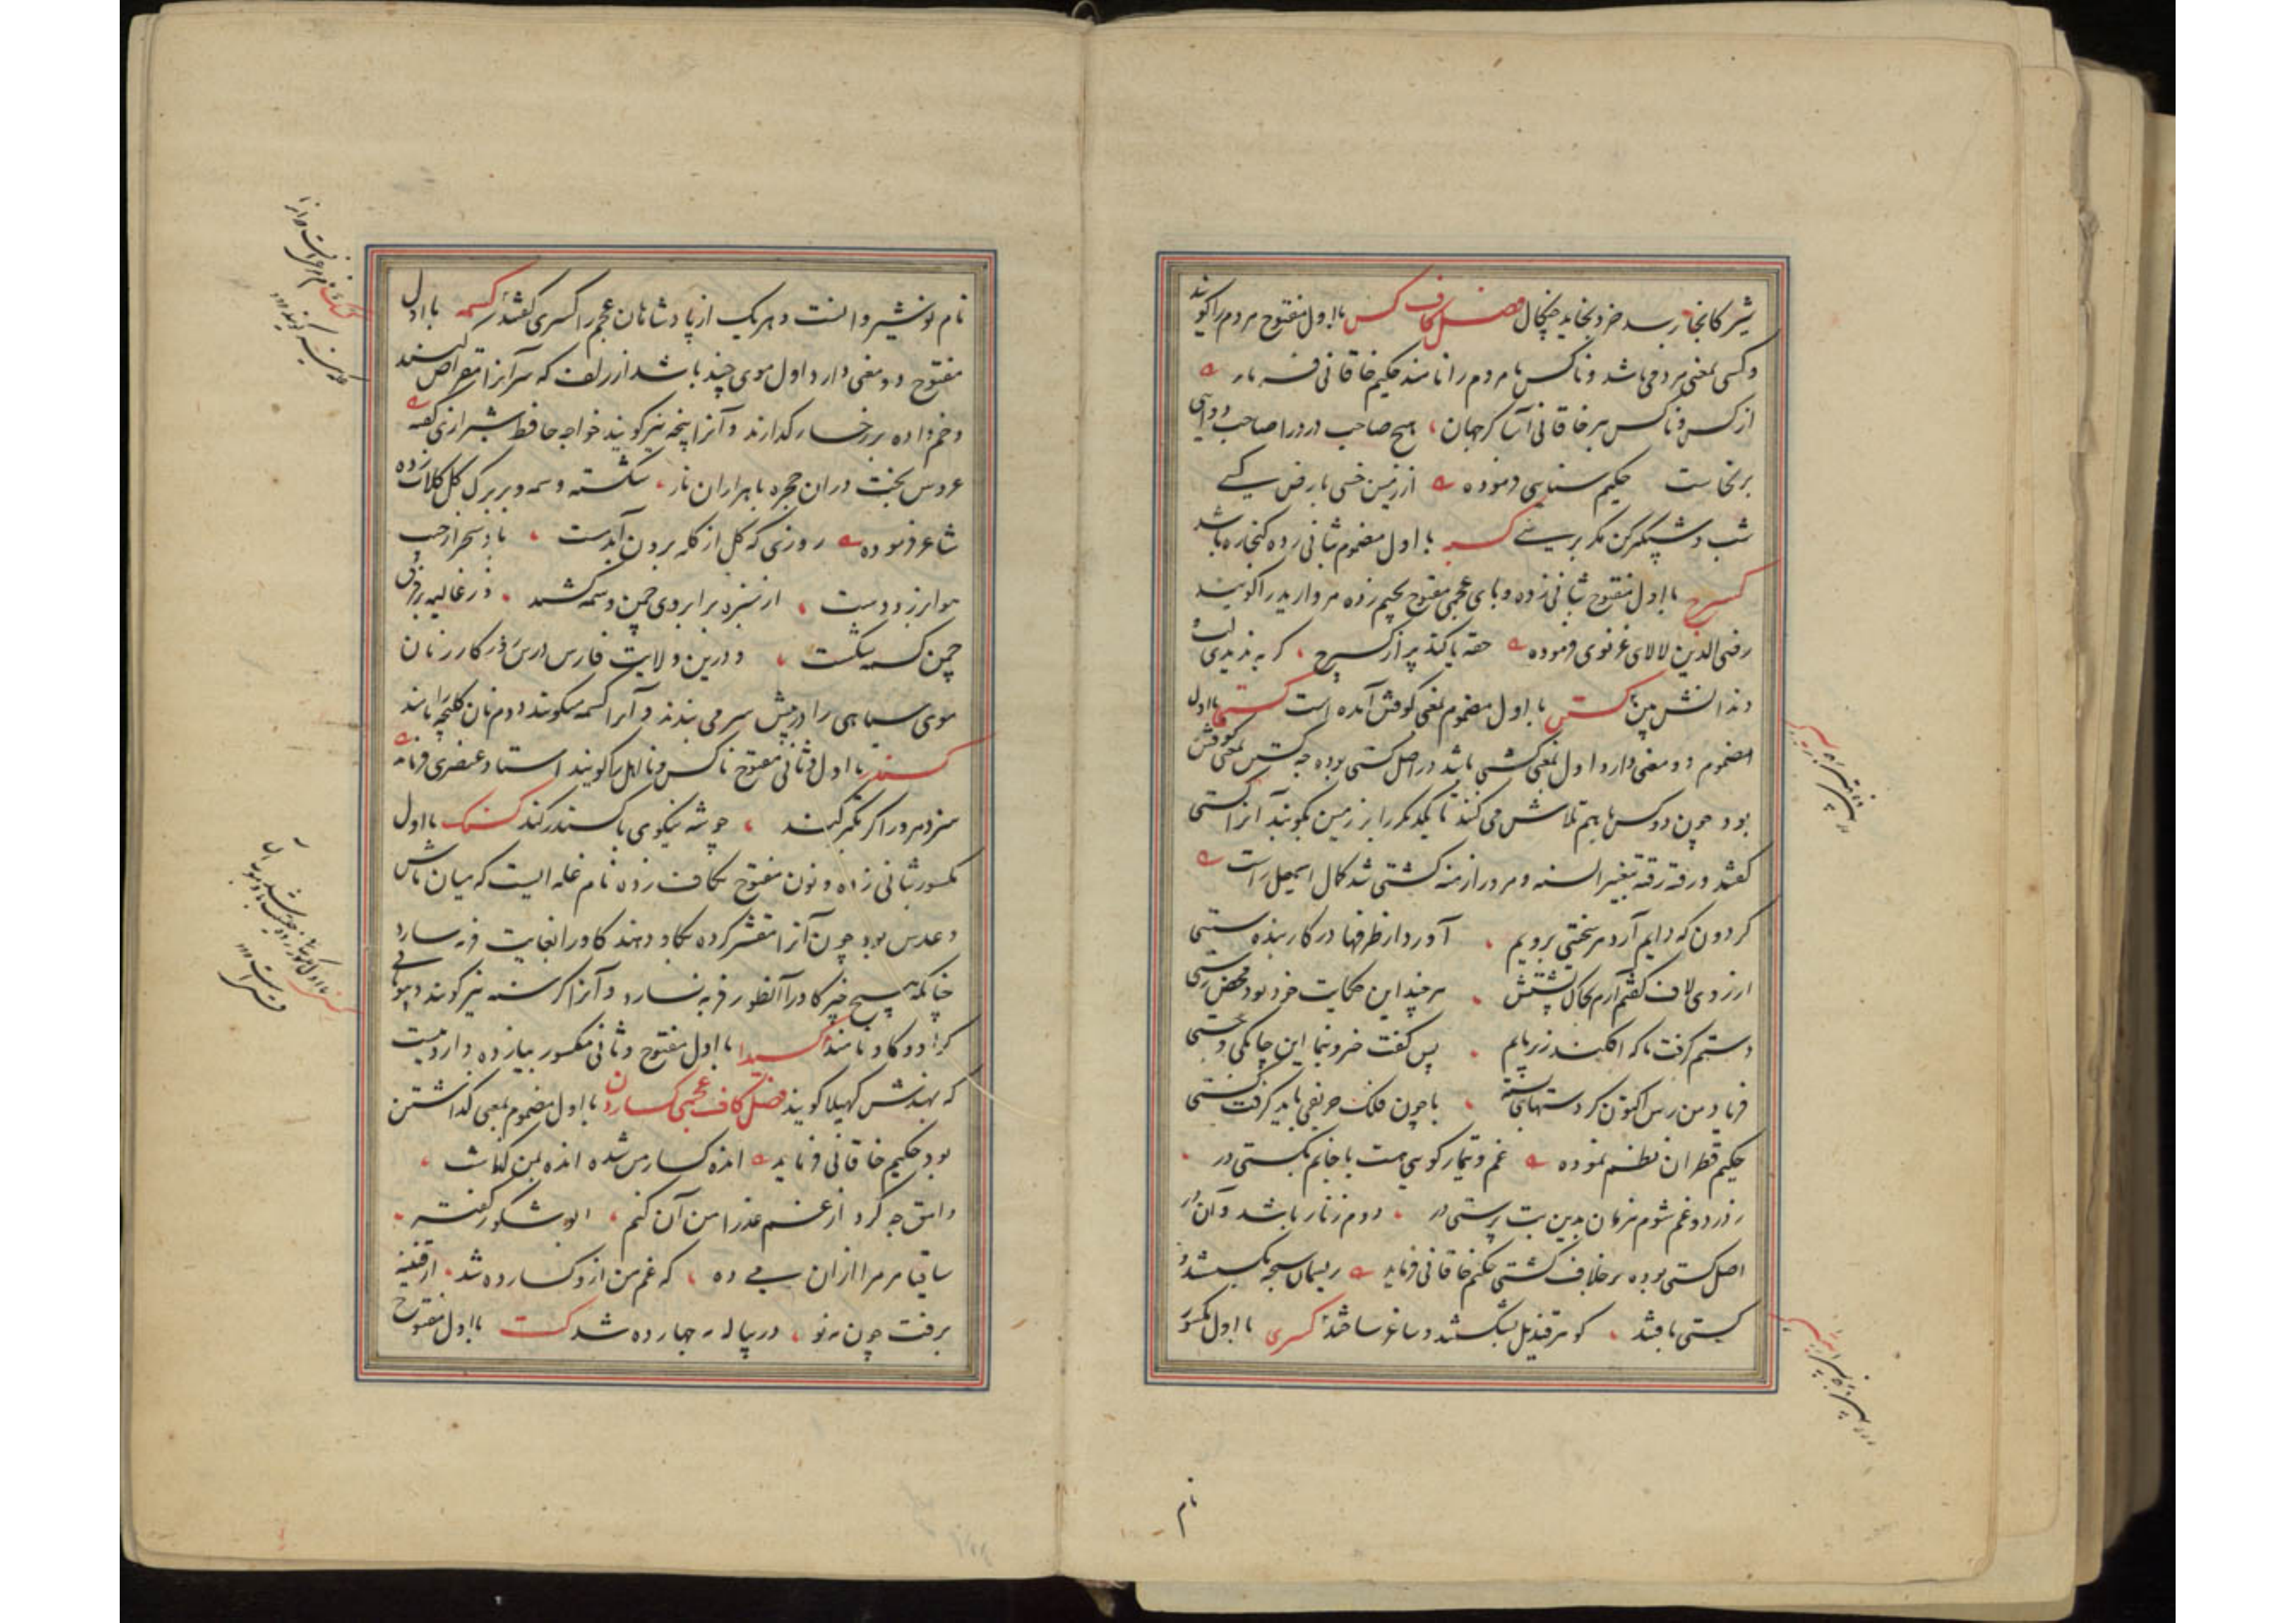 شیر کانجا رسد خرد بخاید چنگال فصل کاف کس با اول مفتوح مردم را گویند
و کسی بمعنی مردمی باشد و ناکس نامردم را نامند حکیم خاقانی فرماید
از کس و ناکس ببر خاقانی آسا کز جهان هیچ صاحب درد را صاحب دوایی
برنخاست حکیم سنایی فرموده از زمین خسی بارض کسی
با اول مضموم بثانی زده کنجاره باشد
کسپرج با اول مفتوح بثانی زده و بای عجمی مفتوح بجیم زده مروارید را گویند
رضی الدین لالای غزنوی فرموده حقه یاکند پر از کسپرج که به
دندانش بین کستن با اول مضموم بمعنی کوفتن آمده است کستی با اول
مضموم دو معنی دارد اول بمعنی کشتی باشد در اصل کستی بوده چه کستن بمعنی کوفتن
بود چون دو کس باهم تلاش می کنند تا یکدیگر را بر زمین بکوبند آنرا کستی
گفتند و رفته رفته بتغییر السنه و مرور ازمنه کشتی شد کمال اسمعیل راست
گردون که دایم آرد مر سختی برویم آورد از ظرفها در کار بنده سستی
از روی لاف گفتم آرم بخاک پشتش هر چند این حکایت خود بود محض رستی
دستم گرفت ناگه افکند زیر پایم پس گفت خسروانه این چابکی و چستی
فریاد من رس اکنون کز دستهای بسته با چون فلک حریفی باید گرفت کستی
حکیم قطران نظم نموده غم و تیمار گویی هست با جانم بکستی در
ز درد و غم شوم هزمان بدین بت پرستی در دوم زنار باشد و آن در
اصل کستی بوده بر خلاف کشتی حکیم خاقانی فرماید ریسمان سبحه بگسستند و
کستی بافتند گوهر قندیل بشکستند و ساغر ساختند کسری با اول مکسور
نام
نام نوشیروانست و هر یک از پادشاهان عجم را کسری گفتند کسمه با اول
مفتوح دو معنی دارد اول موی چند باشد از زلف که سر آنرا مقراض کنند
و خم داده بر رخسار گذارند و آنرا پیخه نیز گویند خواجه حافظ شیرازی گفته
عروس بخت دران حجره با هزاران ناز شکسته وسمه و بر برگ گل گلاب زده
شاعر فرموده روزی که گل از کله برون آید مست باد سحر از جیب
هوا برزد دست از سبزه بر ابروی چمن وسمه کشید وز غالیه بر فرق
چمن کسمه شکست و درین ولایت فارس درس در کار زنان
موی سیاهی را در پیش سر می بندند و آنرا کسمه میگویند دوم نان کلیچه را نامند
کسندر با اول و ثانی مفتوح ناکس و نااهل را گویند استاد عنصری فرماید
سزد مرد را گر تکبر کند چو شه نیکوی با کسندر کند کسنک با اول
مکسور بثانی زده و نون مفتوح بکاف زده نام غله ایست که میان ماش
و عدس بود چون آنرا مقشر کرده بگاو دهند گاو را بغایت فربه سازد
چنانکه هیچ چیز گاو را آنطور فربه نسازد و آنرا کرسنه نیز گویند و بهندوی
کراو و کاو نامند کسیلا با اول مفتوح و ثانی مکسور بیا زده دارویست
که بهندیش کهیلا گویند فصل کاف عجمی کساردن با اول مضموم بمعنی گذاشتن
بود حکیم خاقانی فرماید انده گسار من شد و انده بمن گذاشت
وامق چه کرد از غم عذرا من آن کنم ابو شکور گفته
ساقیا مر مرا ازان می ده که غم من ازو گسارده شد از قنینه
برفت چون مه نو در پیاله مه چهارده شد کست با اول مفتوح